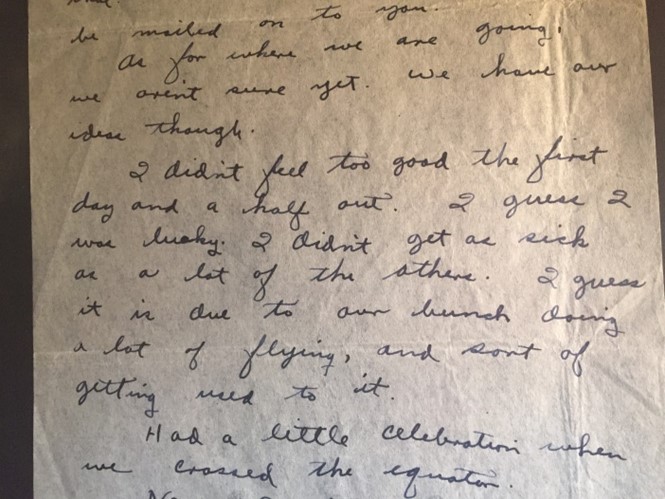 be mailed on to you.
As for where we are going,
we aren't sure yet. We have our
ideas though.
I didn't feel too good the first
day and a half out. I guess I
was lucky. I didn't get as sick
as a lot of the others. I guess
it is due to our bunch doing
a lot of flying, and sort of
getting used to it.
Had a little celebration when
we crossed the equator.